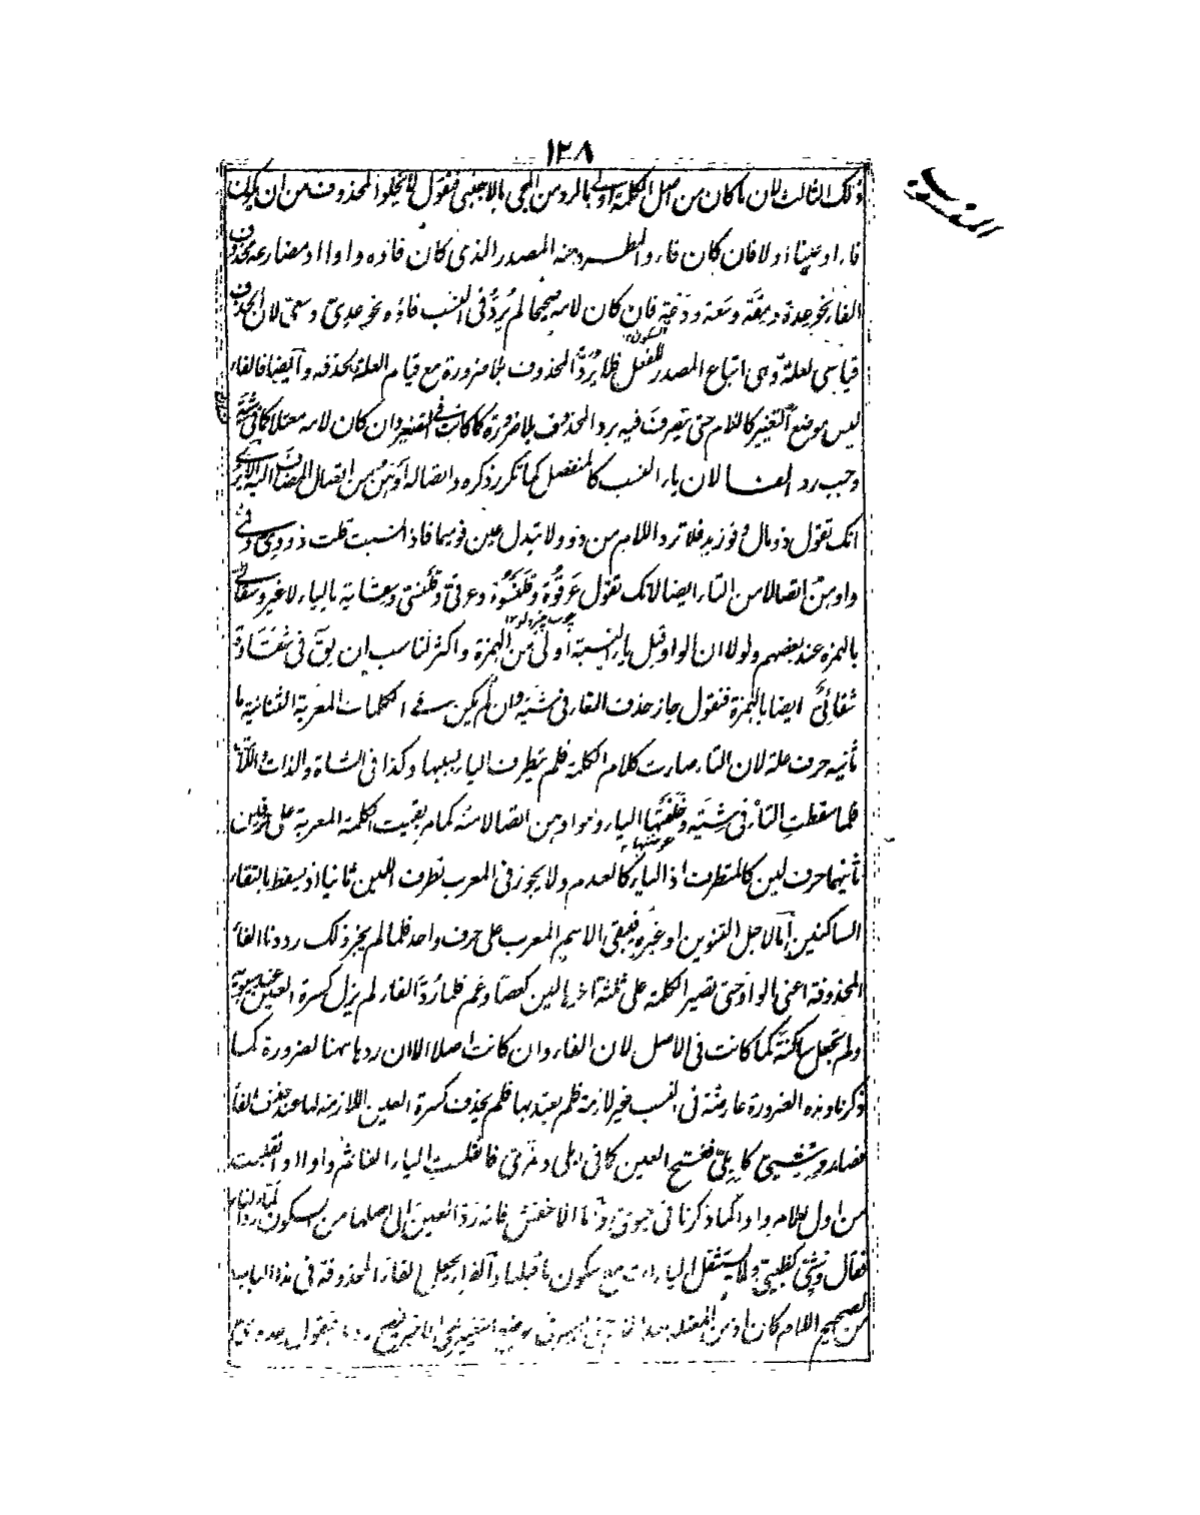 ١٢٨
المنسوب
ذلك الثالث لان ما كان من اصل الكلمة اولى بالرد من المجى بالاجنبى فنقول لا يخلوا المحذوف من ان يكون
فاء او عينا او لاما فان كان فاء والمطرد منه المصدر الذى كان فاؤه واوا ومضارعه محذوف
الفاء نحو عدة ومقة وسعة ودعة فان كان لامه صحيحا لم يُردّ فى النسب فاؤه نحو عدىّ وسعى لان الحذف
قياسى لعلة وهى اتباع المصدر للفعل فلا يُرَدّ المحذوف بلا ضرورة مع قيام العلة لحذفه وايضا فالفاء
ليس موضع التغيير كاللام حتى يتصرف فيه برد المحذوف بلا ضرورة كما كانت فى التصغير وان كان لامه معتلا كما فى شية
وجب رد الفاء لان ياء النسب كالمنفصل كما تكرر ذكره واتصاله اوهن من اتصال المضاف اليه الا ترى
انك تقول ذو مال وفو زيد فلا ترد اللام من ذو ولا تبدل عين فو ميما فاذا نسبت قلت ذووى وفمى
واوهن اتصالا من التاء ايضا لانك تقول عَرقُوَة وقلنسُوَة وعرقىّ وقلنسى وسقاية بالياء لا غير وسقائى
بالهمزة عند بعضهم ولولا ان الواو قبل ياء النسبة اولى من الهمزة واكثر لناسب ان يق فى شقاوة
شقائىّ ايضا بالهمزة فنقول جاز حذف الفاء فى شية وان لم يكن فى الكلمات المعربة الثنائية ما
ثانيه حرف علة لان التاء صارت كلام الكلمة فلم يتطرف الياء بسببها وكذا فى الشاة والذات واللات
فلما سقطت التاء فى شية وخلفتها الياء وهو اوهن اتصالا منه كما مر بقيت الكلمة المعربة على حرفين
ثانيهما حرف لين كالمتطرف اذ الياء كالعدم ولا يجوز فى المعرب تطرف اللين ثانيا اذ يسقط بالتقاء
الساكنين اما لاجل التنوين او غيره فيبقى الاسم المعرب على حرف واحد فلما لم يجز ذلك رددنا الفاء
المحذوفة اعنى الواو حتى تصير الكلمة على ثلثة اخرها لين كعصا وعم فلما رُدّ الفاء لم يزل كسرة العين عند سيبويه
ولم تجعل ساكنة كما كانت فى الاصل لان الفاء وان كانت اصلا الا ان ردها ههنا لضرورة كما
ذكرنا وهذه الضرورة عارضة فى النسب غير لازمة فلم يعتد بها فلم يحذف كسرة العين اللازمة لها عند حذف الفاء
فصار وِشِيىّ كاِبِلىّ ففتح العين كما فى ابلى ونمرى فانقلبت الياء الفا ثم واوا او انقلبت
من اول الامر واوا كما ذكرنا فى حيوى واما الاخفش فانه ردّ العين الى اصلها من السكون لما رد الفاء
فقال وِشْيى كظَبيى ولا يستثقل الياءات مع سكون ما قبلها والفراء يجعل الفاء المحذوفة فى هذا الباب
من الصحيح اللام كان او من المعتله بعد اللام حتى يصير فى موضع التغيير اى الاخر فيصح ردها فتقول عدوىّ